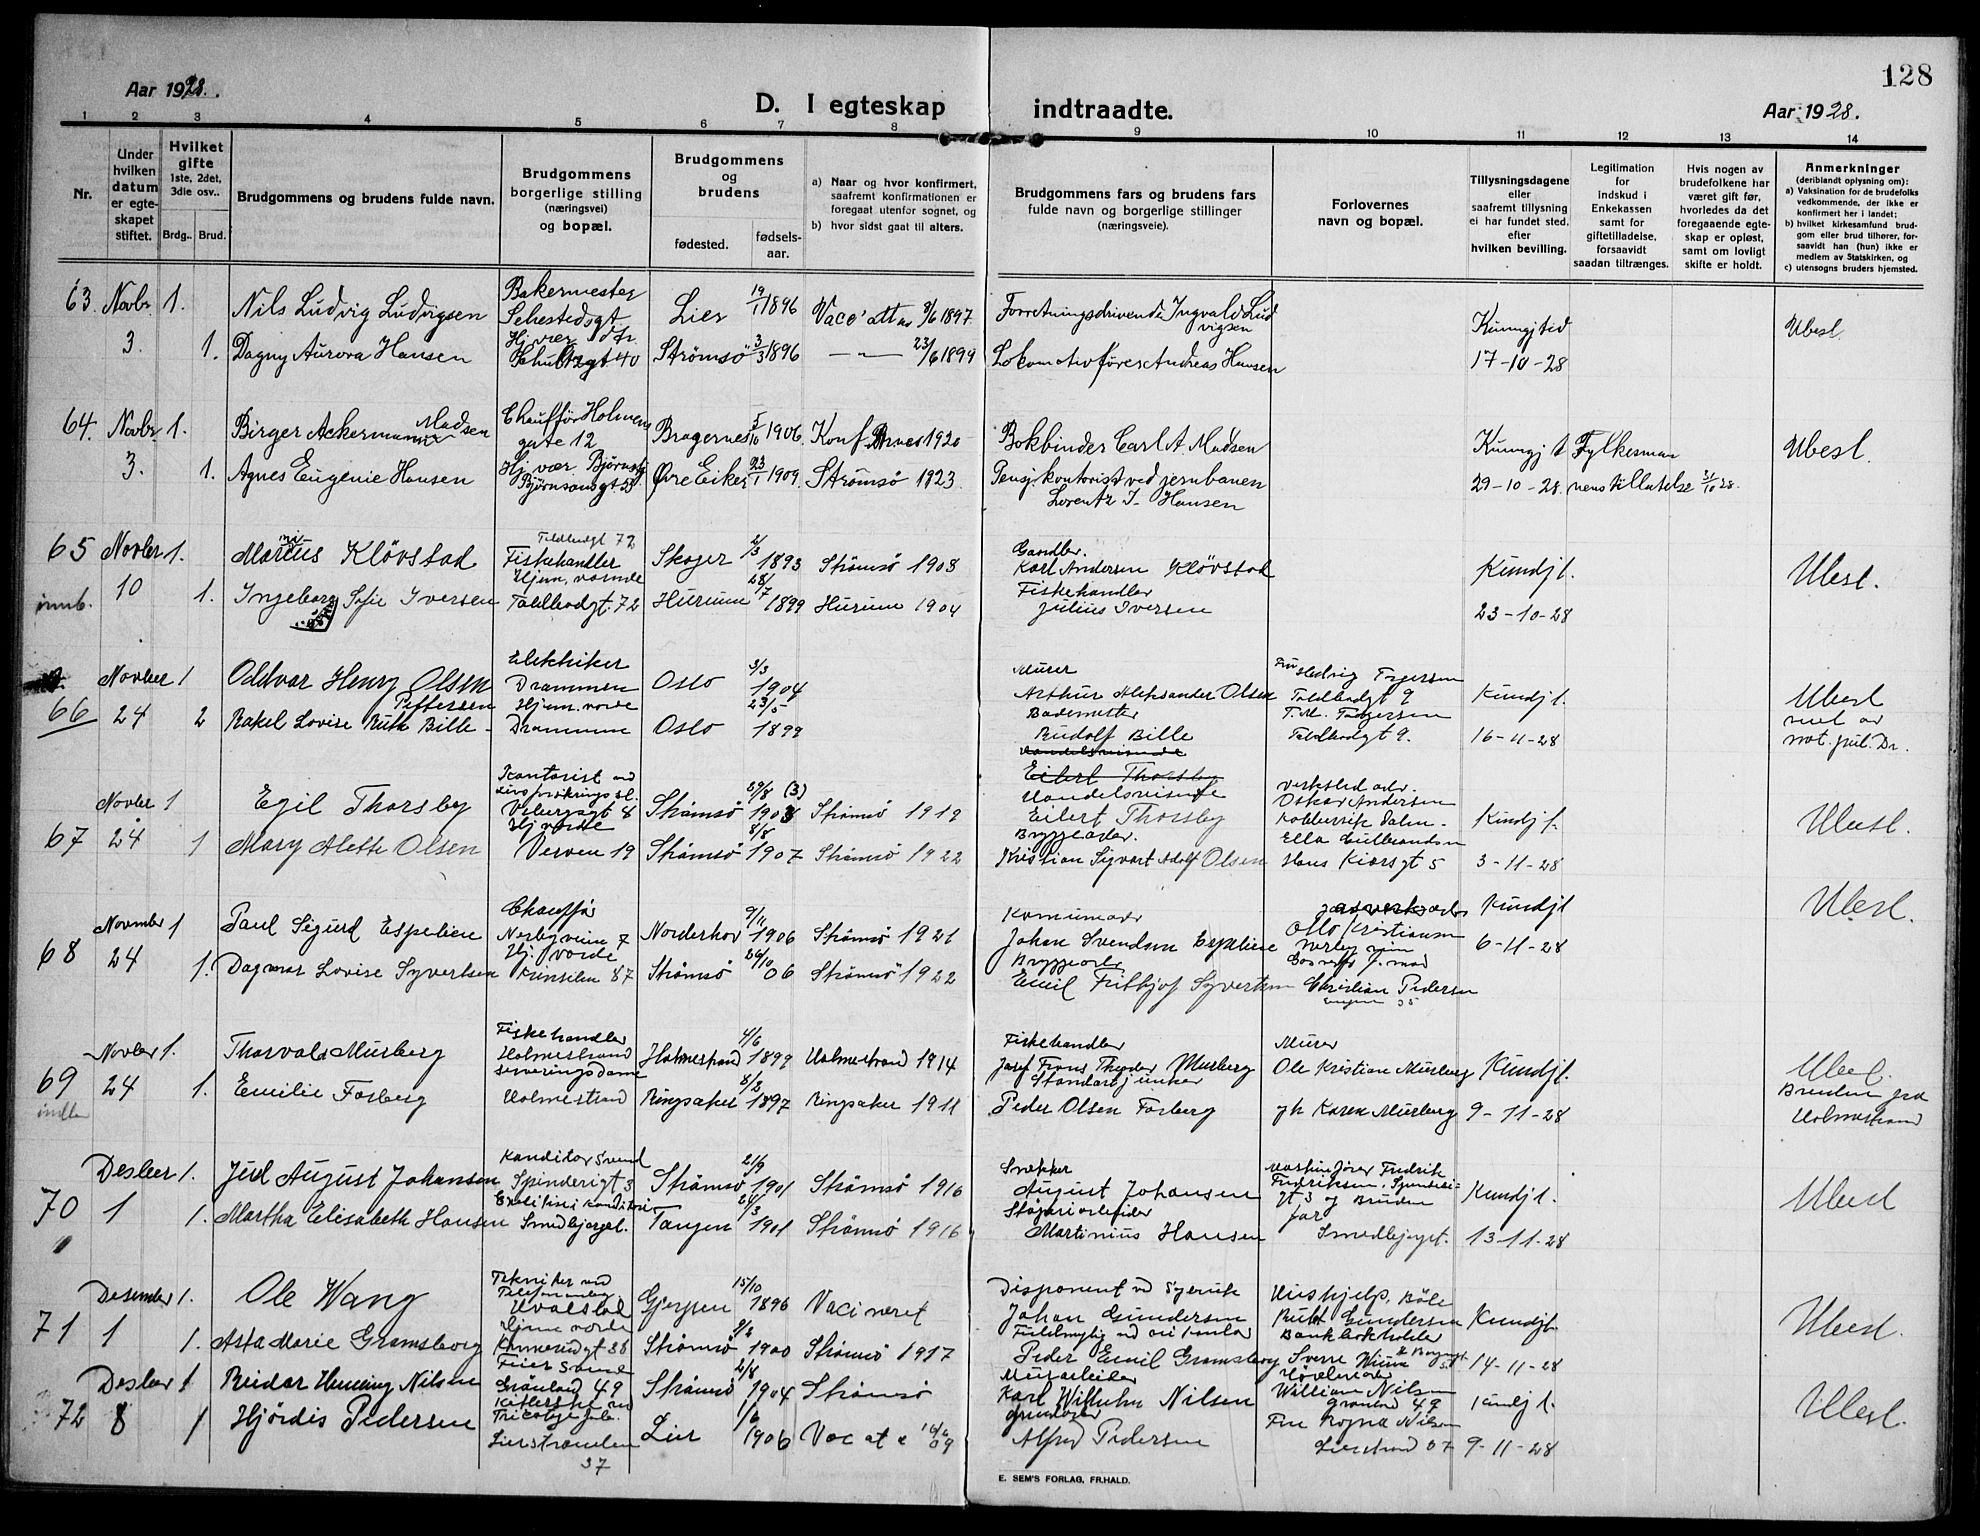 128
Aar 1928.
D. I egteskap indtraadte.
Aar 1928.
1 2 3 4 5 6 7 8 9 10 11 12 13 14
Nr.
Under hvilken datum er egteskapet stiftet.
Hvilket gifte 1ste, 2det, 3die osv..
Brdg.. Brud.
Brudgommens og brudens fulde navn.
Brudgommens borgerlige stilling (næringsvei) og bopæl.
Brudgommens og brudens
fødested.
fødsels-aar.
a) Naar og hvor konfirmert, saafremt konfirmationen er foregaat utenfor sognet, og
b) hvor sidst gaat til alters.
Brudgommens fars og brudens fars fulde navn og borgerlige stillinger (næringsveie).
Forlovernes navn og bopæl.
Tillysningsdagene eller saafremt tillysning ei har fundet sted. efter hvilken bevilling.
Legitimation for Indskud i Enkekassen samt for giftetilladelse, forsaavidt saadan tiltrænges.
Hvis nogen av brudefolkene har været gift før, hvorledes da det foregaaende egteskap er opløst, samt om lovlig skifte er holdt.
Anmerkninger (deriblandt oplysning om):
a) Vaksination for de brudefolks vedkommende, der ikke er konfirmert her i landet;
b) hvilket kirkesamfund brudgom eller brud tilhører, forsaavidt han (hun) ikke er medlem av Statskirken, og
c) utensogns bruders hjemsted.
63. Novbr 1. Nils Ludvig Ludvigsen Bakermester Sehestedsgt Lier 19/1 1896 Vacc' attas 3/6 1897 Forretningsdrivende Ingvald Ludvigsen Kunngjted Ubesl.
3. 1. Dagny Aurora Hansen Hj. vær. dtr Schultzgt 40 Strømsø 3/3 1896 —"— 23/6 1899 Lokomotivfører Andreas Hansen 17-10-28
64. Novbr 1. Birger Ackermann Madsen Chauffør Holmensgate 12 Bragernes 5/10 1906 Konf. Brnes 1920 Bokbinder Carl A. Madsen Kunngj t Fylkesman Ubesl.
3. 1. Agnes Eugenie Hansen Hj. vær Bjørnstj Bjørnsonsgt. Øvre Eiker 23/1 1909. Strømsø 1923. Pensj. kontorist ved jernbanen Lorentz J. Hansen 29-10-28. nens tillatelse 31/10 28.
65 Novber 1. Marius Kløvstad Tollbodgt 72 Fiskehandler Skoger 2/3 1893 Strømsø 1908 Gaardbr. Karl Andersen Kløvstad Kundjt. Ubesl.
innb. 10 1. Ingeborg Sofie Iversen Hjem. værende Tollbodgt. 72 Hurum 28/7 1899 Hurum 1904 Fiskehandler Julius Iversen 23-10-28
66 Novber 1 Oddvar Henry Olsen Elektriker Drammen Oslo 3/3 1904 Murer Arthur Aleksander Olsen Fru Hedvig Torgersen Tollbodgt 9 Kundjt. Ubesl
24 2 Rakel Lovise Ruth Bille Pettersen Hjem. vorde Drammen Oslo 23/5 1899 Bademester Rudolf Bille T.M. Torgersen Tollbodgt 9. 16-11-28 not. pul. Dr.
Eilert Thorsby
67 Novber 1 Egil Thorsby Kontorist ved Livsforsikringss. Strømsø 29/8 (3) 1908 Strømsø 1919 Handelsreisende Eilert Thorsby Verksted arb. Oskar Andersen Kundjt. Ubesl.
24 1 Mary Alette Olsen Hj vorde Verven 19 Strømsø 8/8 1907 Strømsø 1922 Bryggearb. Kristian Sigvart Adolf Olsen Ella Gulbrandsen Hans Kiærsgt 5 3-11-28
68 November 1 Paul Sigurd Espeliene Chauffør Norbyveien 7 Norderhov 9/11 1906 Strømsø 1921 Komunearb Johan Svendsen Espeliene Otto Kristiansen Kundjt Ubesl.
24 1. Dagmar Lovise Syvertsen Hj. vorde 87 Strømsø 26/10 06 Strømsø 1922 Bryggearb Emil Frithjof Syvertsen Christian Pedersen 6-11-28
69 Novber 1. Thorvald Murberg Fiskehandler Holmestrand Holmestrand 4/6 1899 Holmestrand 1914 Fiskehandler Josef Frans Theodor Murberg Murer Ole Kristian Murberg Kundjt. Ubesl.
24 1. Emilie Fosberg Serveringsdame Holmestrand Ringsaker 8/2 1897 Ringsaker 1911 Standartjunker Peder Olsen Fosberg gh Karen Murberg 9-11-28 Bruden fra Holmestrand
70 Desber 1. Juel August Johansen Konditorsvend Spinderigt 3 Strømsø 21/9 1901 Strømsø 1916 Snekker August Johansen Maskinfører Fredrik Fredriksen. Spinderigt 3 og Brudens far Kundjt. Ubesl
1 1. Martha Elisabeth Hansen Smedbjerget. Tangen 24/3 1901 Strømsø 1916 Støperiarbeider Martinius Hansen Smedbjerget. 13-11-28
71 Desember 1. Ole Wang Tekniker ved Telefonanlæg Hvalstad Gjerpen 15/10 1896 Vacineret Disponent ved Johan Gundersen Hushjelp. Ruth Gundersen Kundjt. Ubesl.
1 1. Asta Marie Gramsborg Hjem vorde 38 Strømsø 9/2 1900 Strømsø 1917 Peder Emil Gramsborg Bankbokholder Sverre Wium 14-11-28
72 Desber 1 Reidar Henning Nilsen Feier Svend Grønland 49 Strømsø 4/8 1904 Strømsø Murarbeider Karl Wilhelm Nilsen Høvleriarb William Nilsen Grønland 49 Kundjt. Ubesl.
8 1 Hjørdis Pedersen Tricotage fab. Lierstranden 37 Lier 1906 Vac at e 09 Alfred Pedersen Fru Ragna Nilsen Lierstrand 37 9-11-28
E. SEM'S FORLAG, FR.HALD.